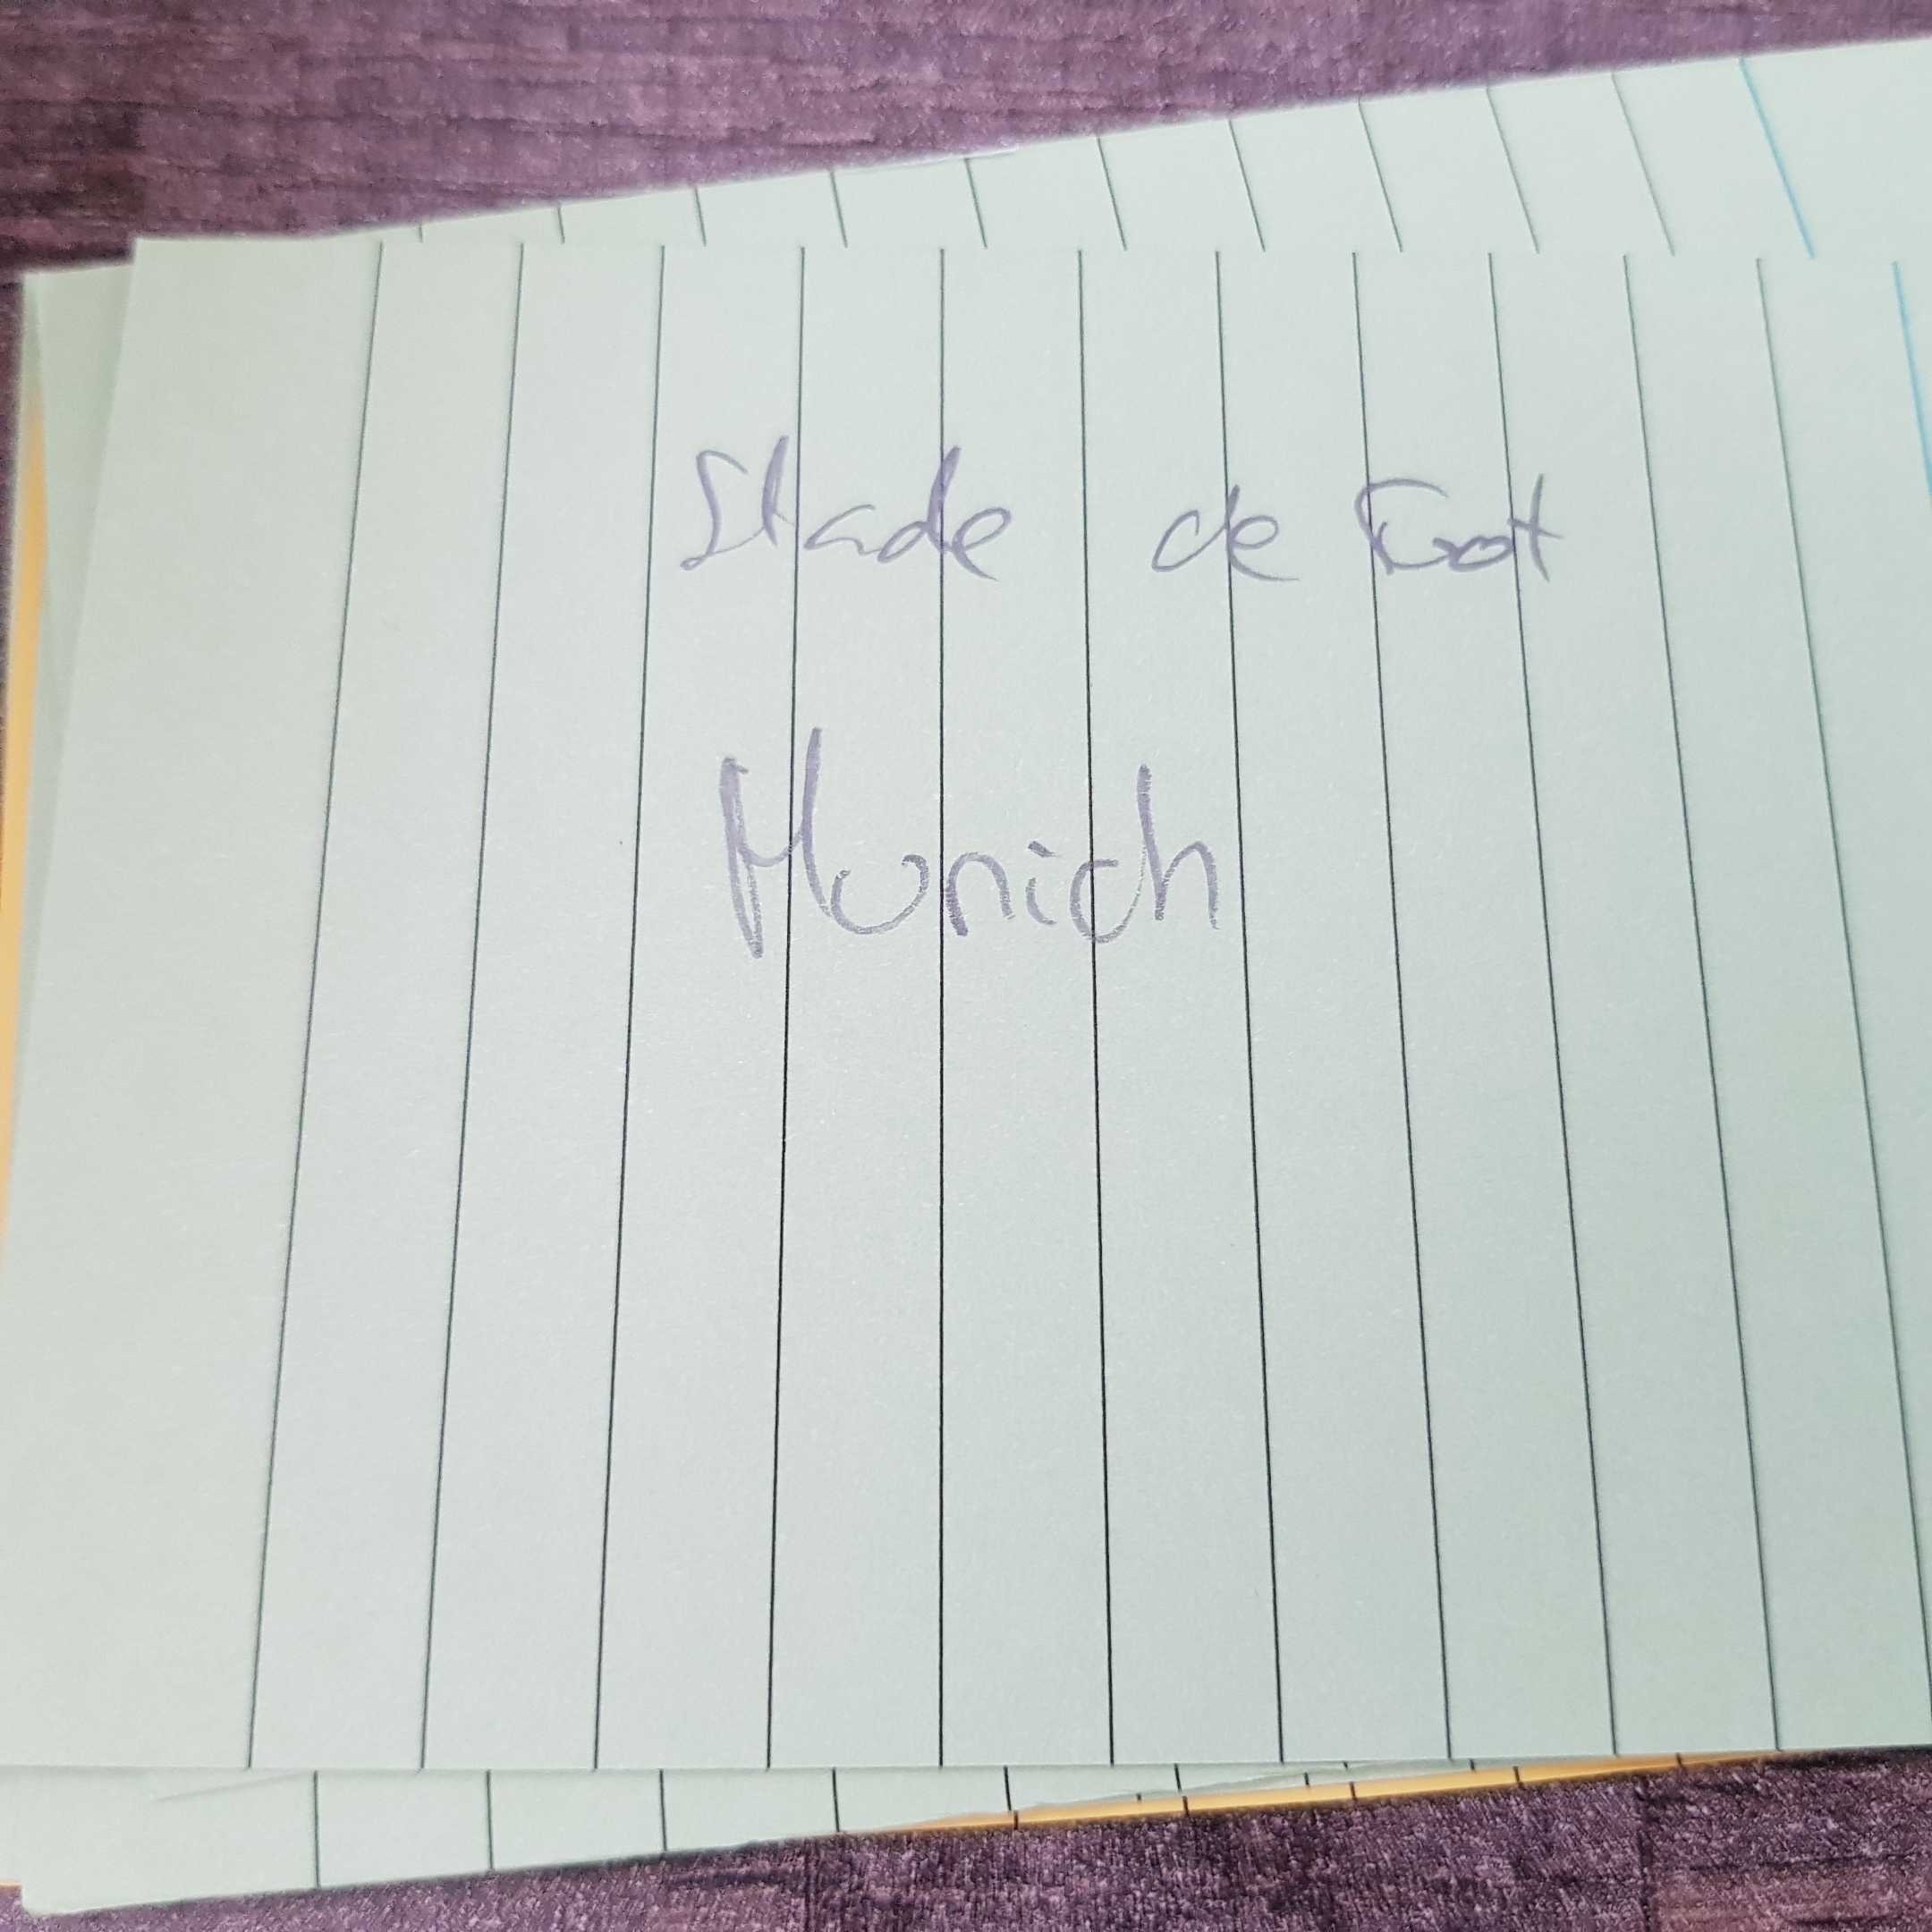 Stade de Foot
Munich